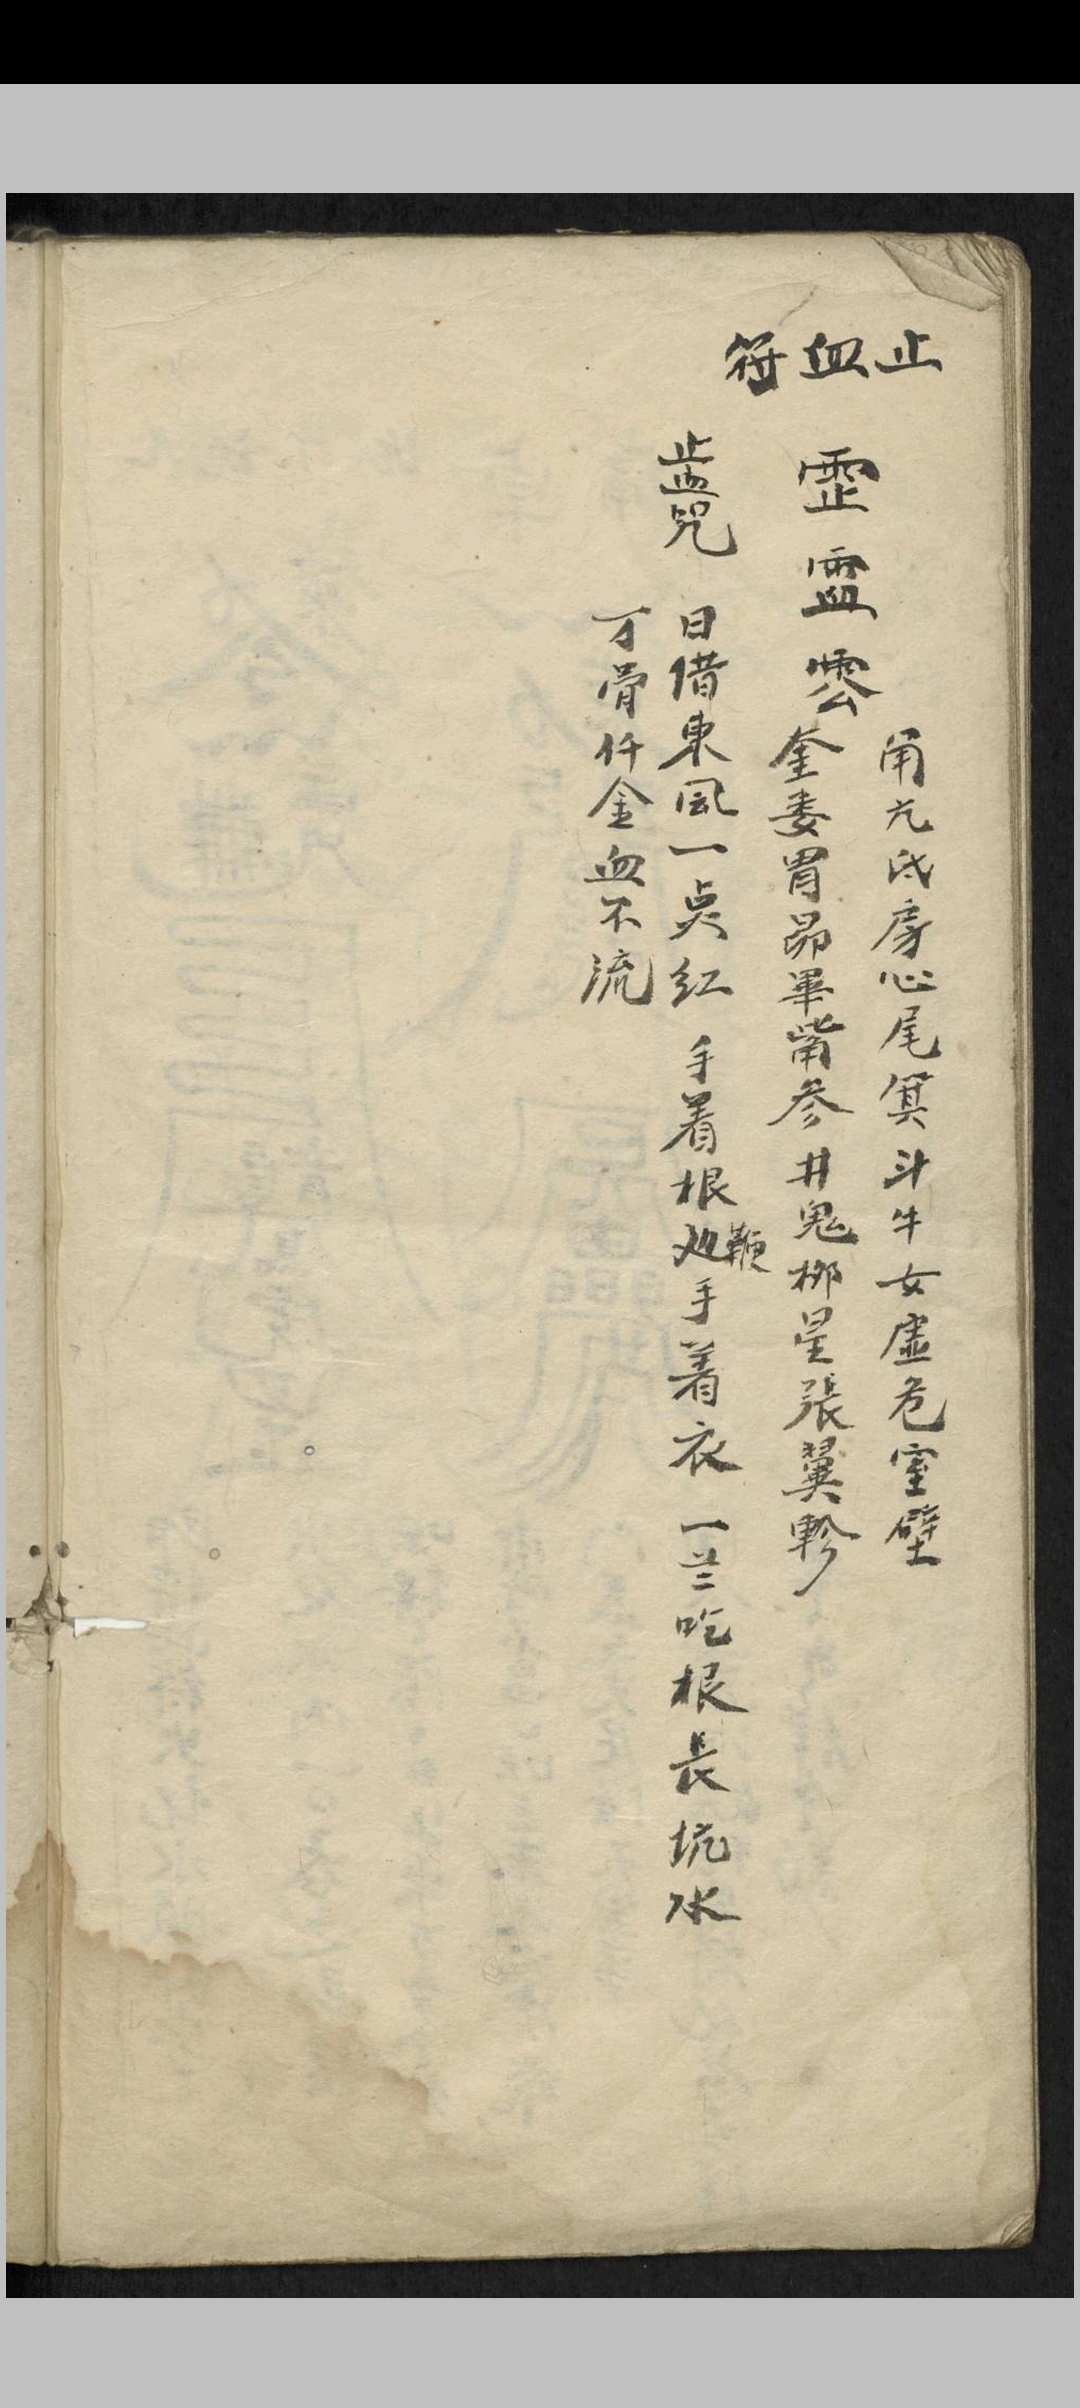 止血符
甪亢氐房心尾箕斗牛女虛危室壁
奎婁胃昴畢觜參井鬼柳星張翼軫
止血咒
日借東風一点紅
手着根
鞭
手着衣
一
吃根長坑水
丁骨仟金血不流